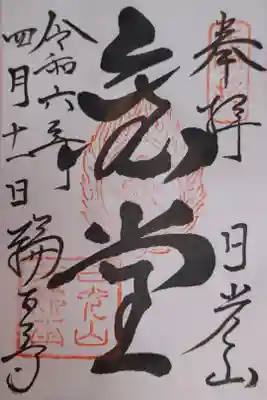 奉拝 日光山
堂
令和六年
四月十一日
輪王寺